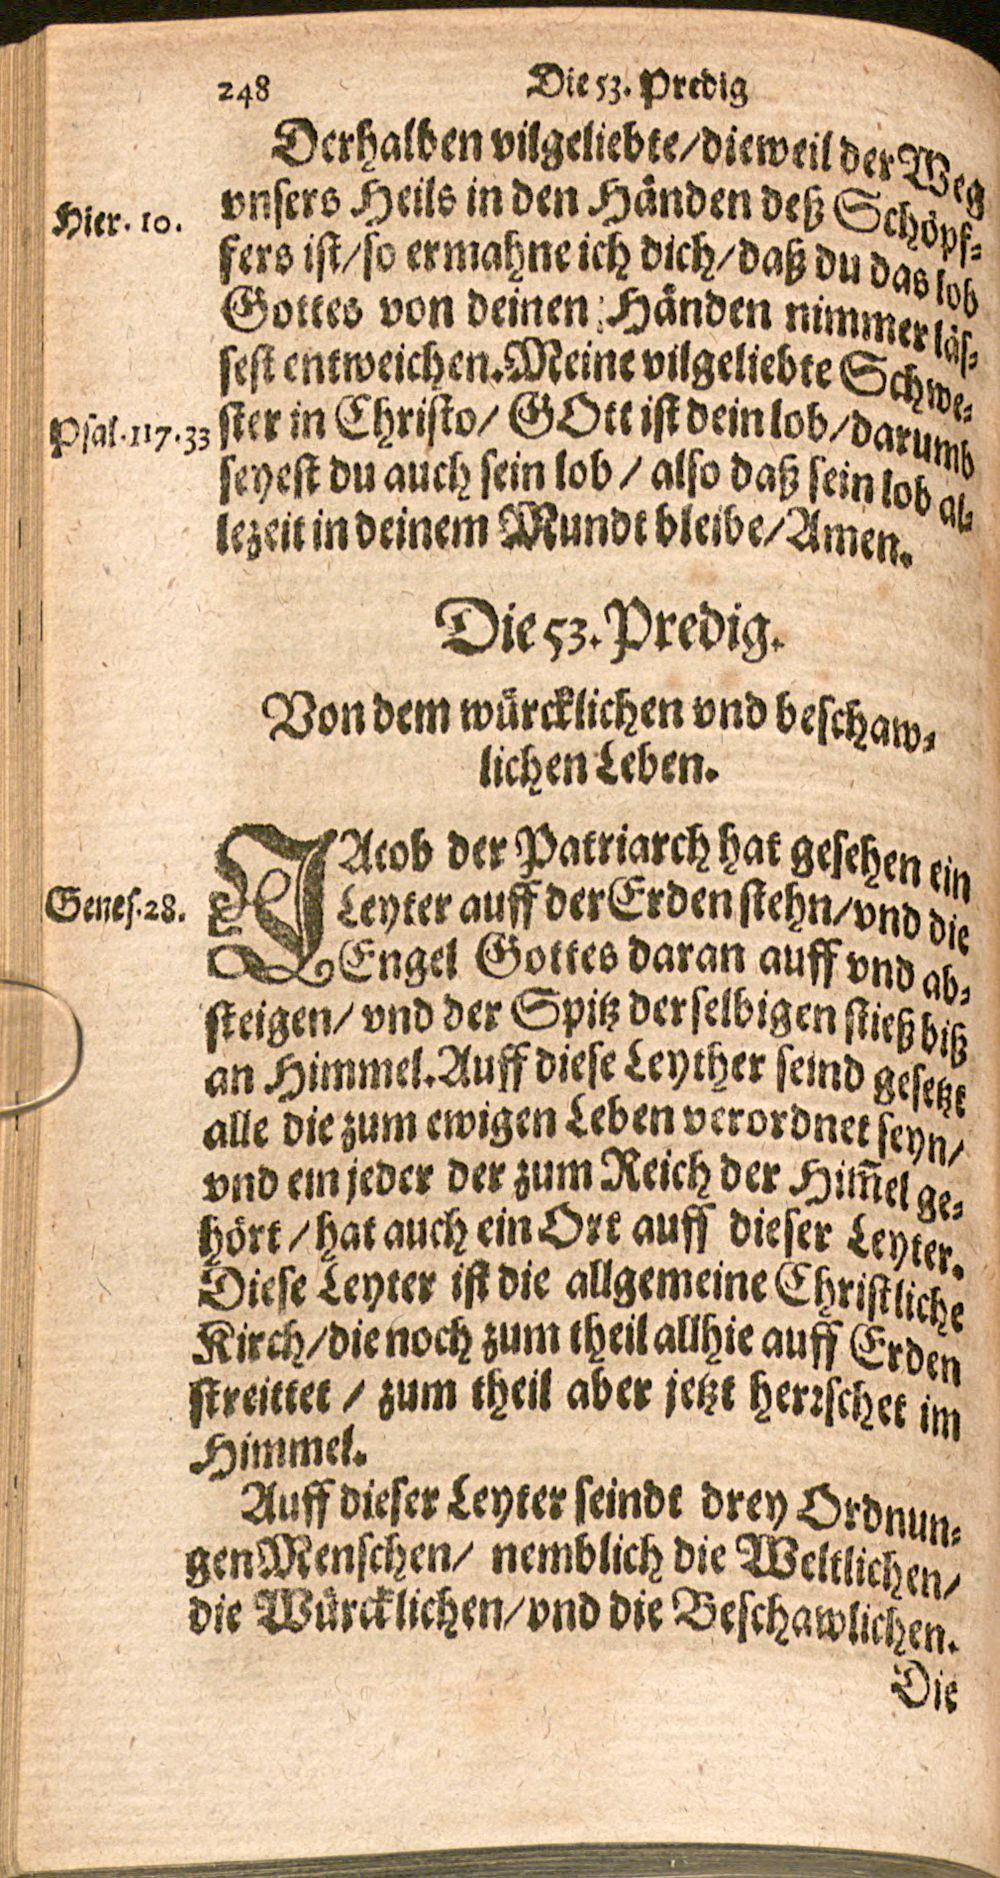 248 Die 53. Predig
Derhalben vilgeliebte/dieweil der Weg
Hier. 10.
vnsers Heils in den Händen deß Schöpf-
fers ist/so ermahne ich dich/daß du das lob
Gottes von deinen Händen nimmer läs-
sest entweichen. Meine vilgeliebte Schwe-
Psal. 117. 33
ster in Christo/ GOtt ist dein lob/darumb
seyest du auch sein lob / also daß sein lob al-
lezeit in deinem Mundt bleibe/Amen.
Die 53. Predig.
Von dem würcklichen vnd beschaw-
lichen Leben.
JAcob der Patriarch hat gesehen ein
Genes. 28.
Leyter auff der Erden stehn/vnd die
Engel Gottes daran auff vnd ab-
steigen/ vnd der Spitz derselbigen stieß biß
an Himmel. Auff diese Leyther seind gesetzt
alle die zum ewigen Leben verordnet seyn/
vnd ein jeder der zum Reich der Him̄el ge-
hört / hat auch ein Ort auff dieser Leyter.
Diese Leyter ist die allgemeine Christliche
Kirch/die noch zum theil allhie auff Erden
streittet / zum theil aber jetzt herrschet im
Himmel.
Auff dieser Leyter seindt drey Ordnun-
gen Menschen/ nemblich die Weltlichen/
die Würcklichen/vnd die Beschawlichen.
Die